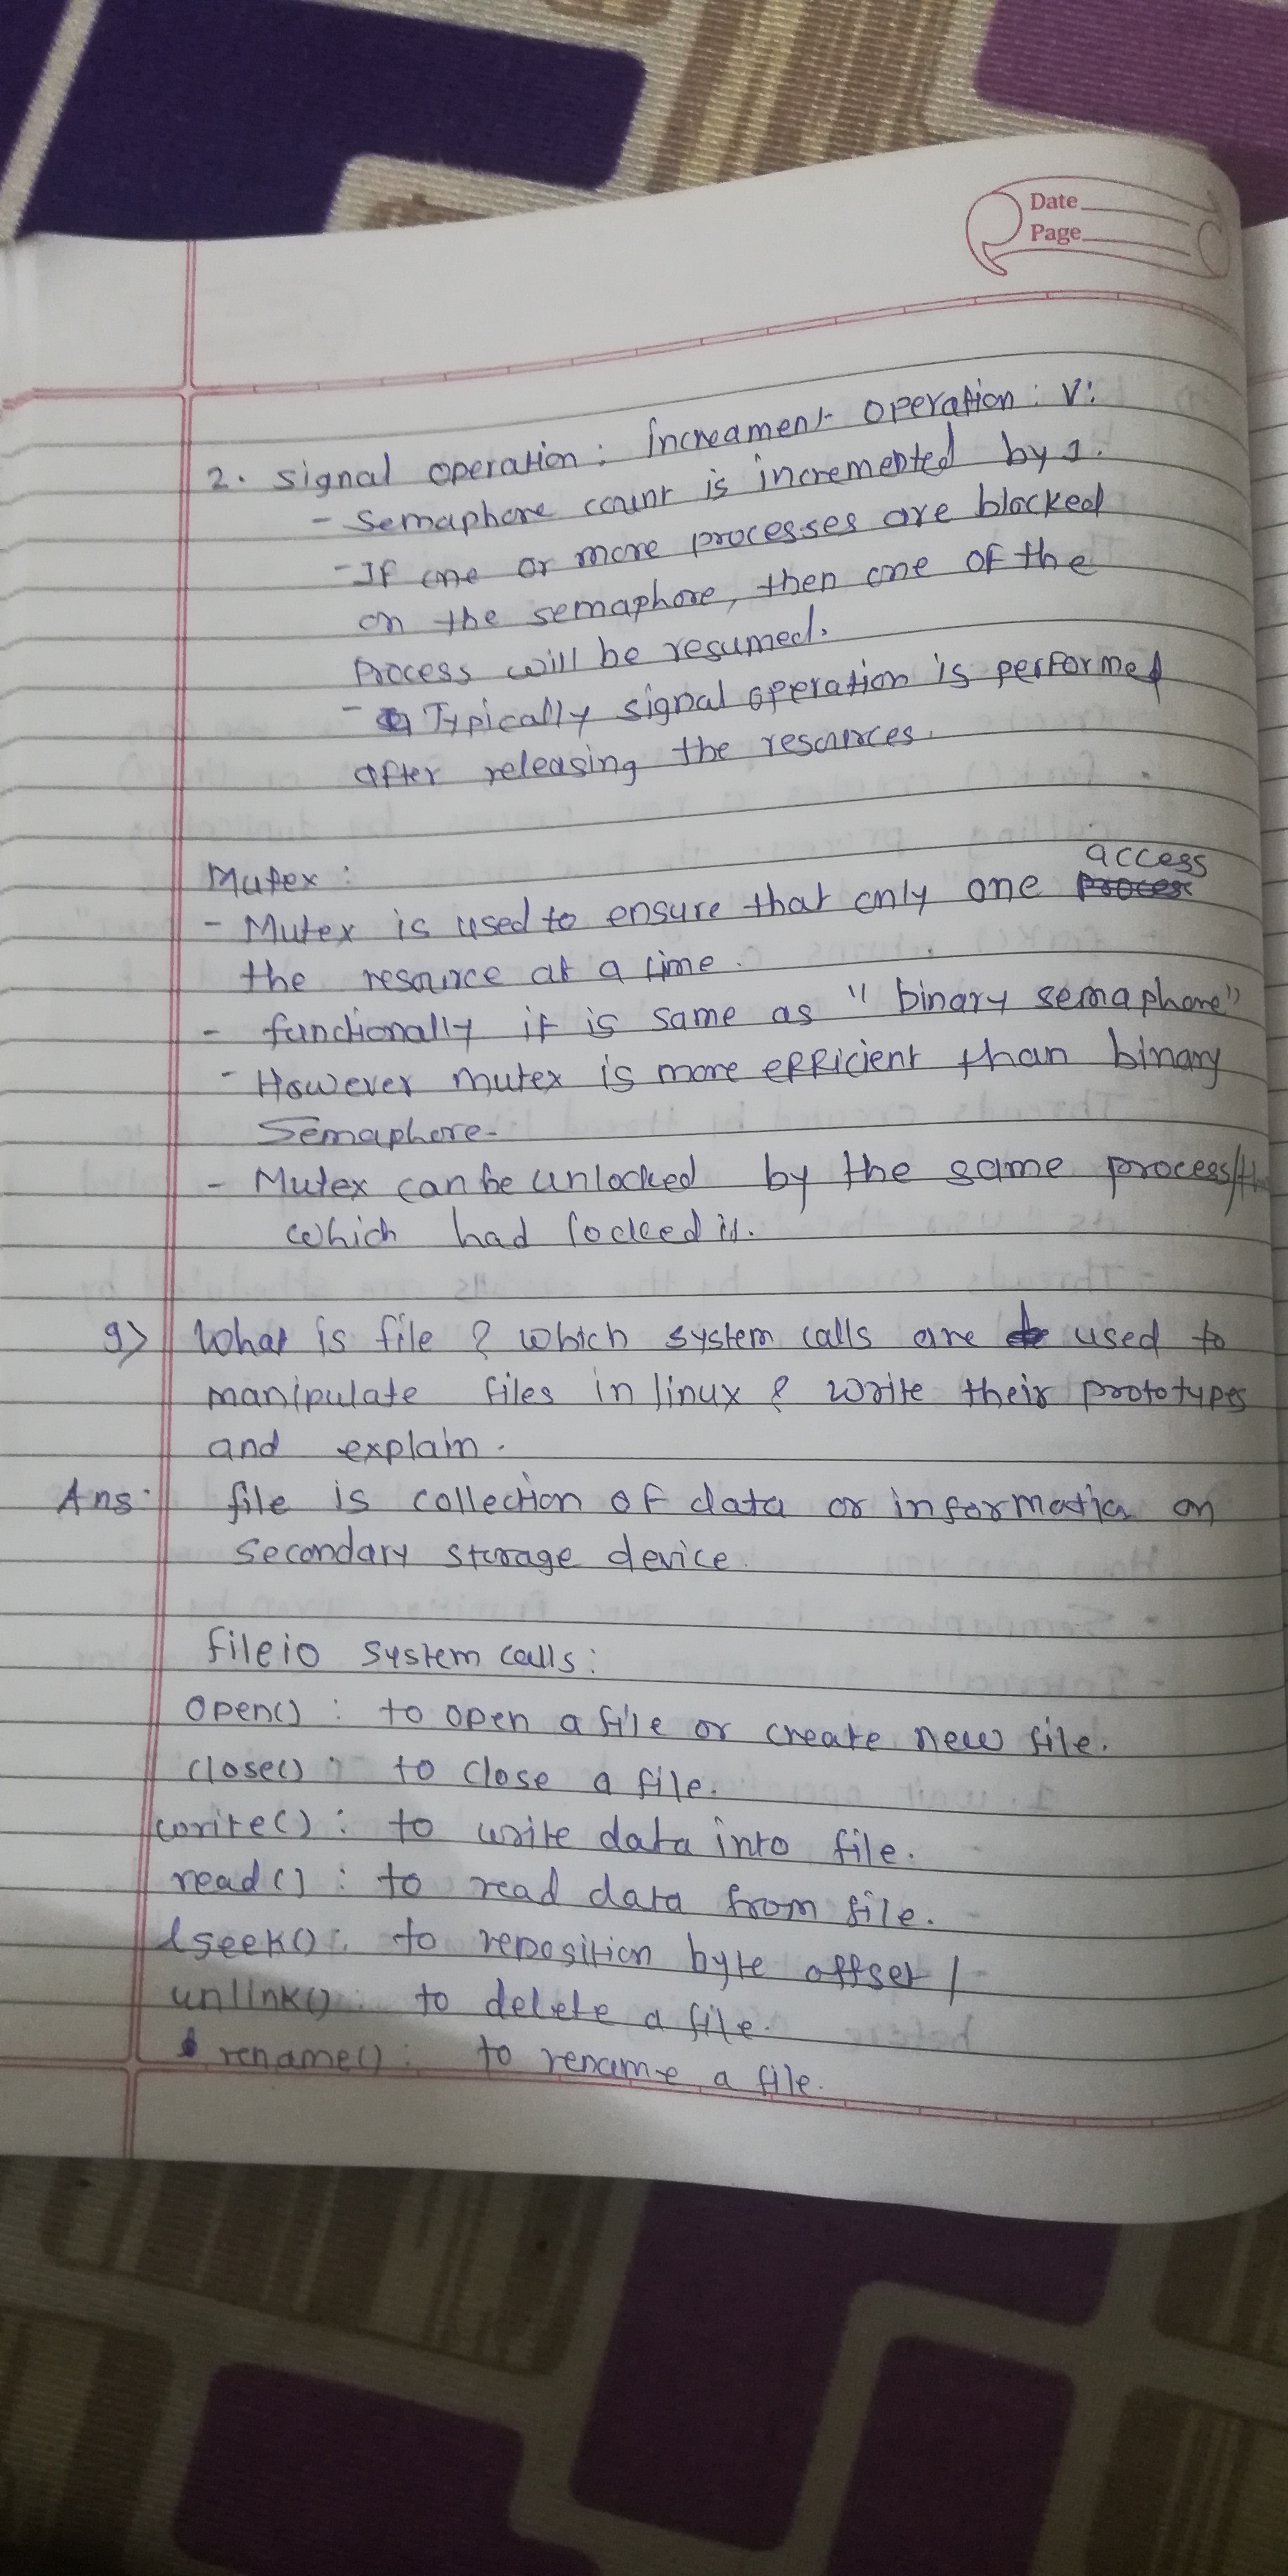 Date
Page
2. Signal operation : increament operation : V:
- Semaphore count is incremented by 1.
- If one or more processes are blocked
on the semaphore, then one of the
process will be resumed.
- Typically signal operation is performed
after releasing the resources.
Mutex :
access
- Mutex is used to ensure that only one process
the resource at a time.
- functionally it is same as "binary semaphore"
- However mutex is more efficient than binary
Semaphore-
- Mutex can be unlocked by the same process/
which had locked it.
9> What is file ? which system calls are used to
manipulate files in linux ? write their prototypes
and explain.
Ans: file is collection of data or information on
secondary storage device.
fileio system calls:
open() : to open a file or create new file.
close() : to close a file.
write() : to write data into file.
read() : to read data from file.
lseek() : to reposition byte offset /
unlink() : to delete a file.
rename() : to rename a file.